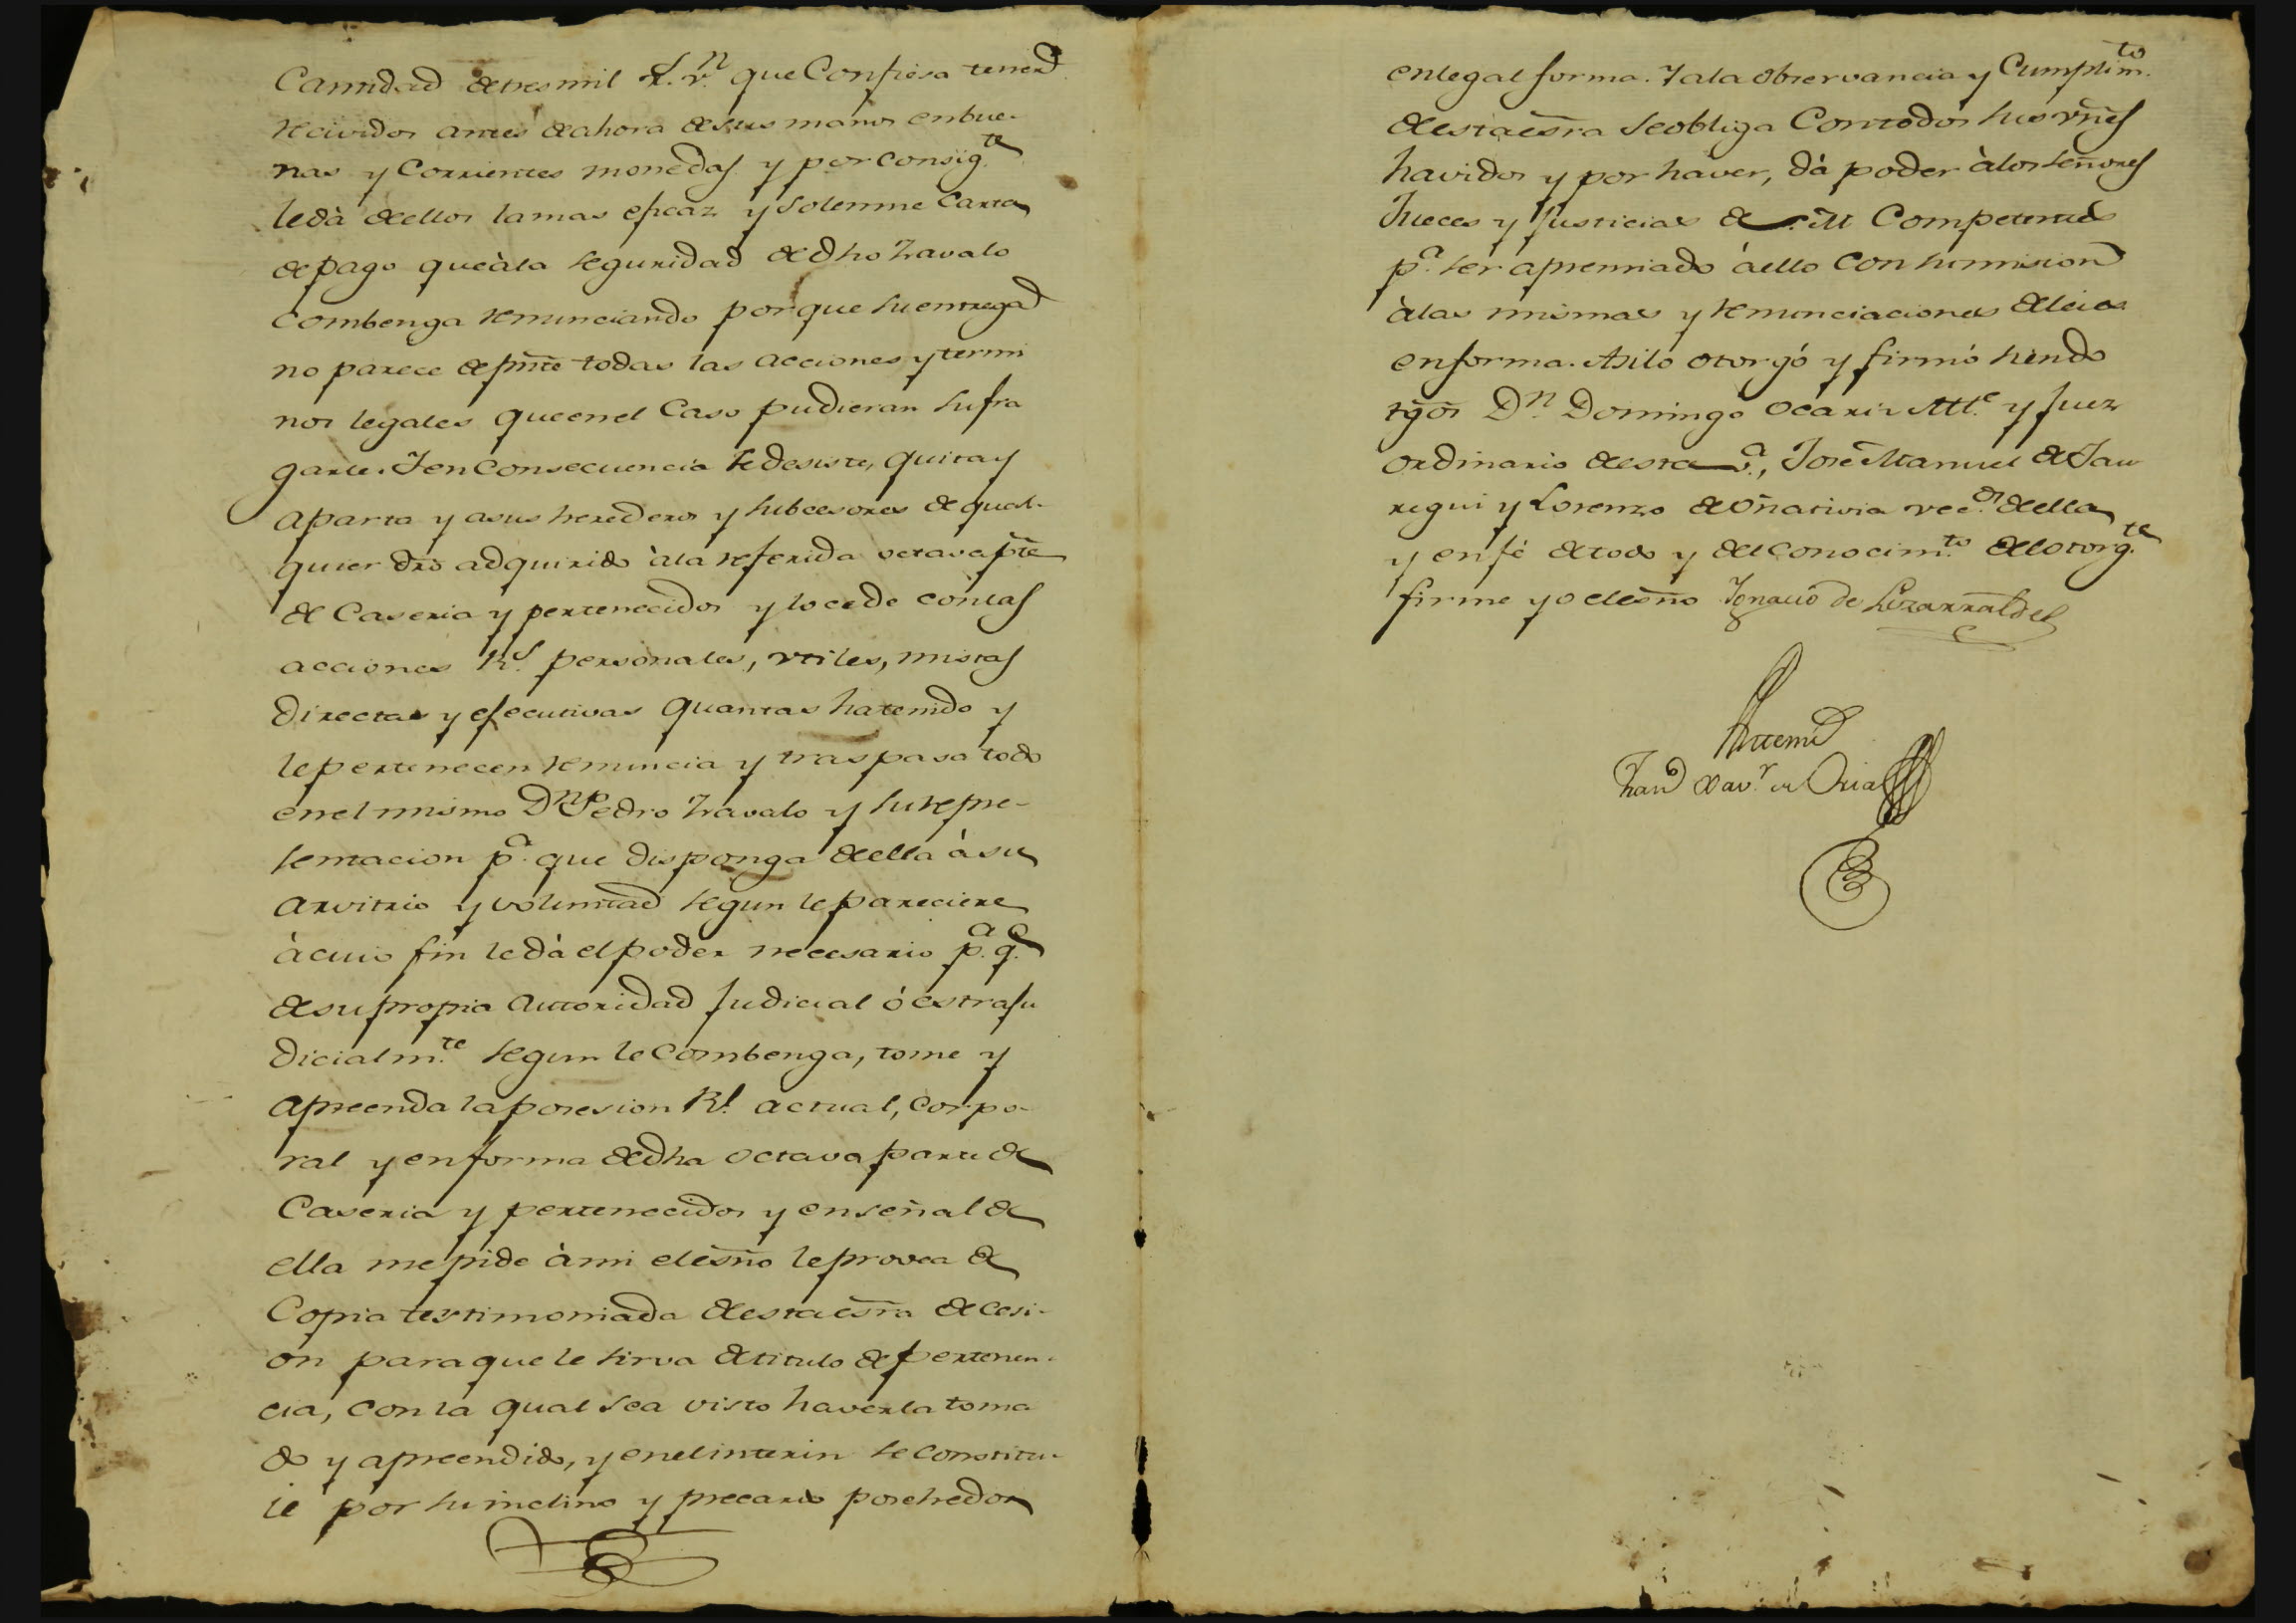 Cantidad de tres mil r.s v.n que Confiesa tener
recividos antes de ahora de sus manos en bue-
nas y Corrientes monedas y por consig.te
le dà de ellos la mas eficaz y solemne Carta
de pago que à la seguridad de dho Zavalo
Combenga renunciando por que su entrega
no parece de pnte todas las acciones y termi
nos legales que en el Caso pudieran sufra
garle. Y en Consecuencia se desiste, quita y
aparta y a sus herederos y subcesores de qual-
quier dro adquirido à la referida octava pte
de Caseria y pertenecidos y lo cede con las
acciones R.s personales, vtiles, mistas
directas y efecutivas quantas ha tenido y
le pertenecen renuncia y traspasa todo
en el mismo D.n Pedro Zavalo y su repre-
sentacion p.a que disponga de ella à su
arvitrio y voluntad segun le pareciere
à cuio fin le dà el poder necesario p.a q.e
de su propria autoridad Judicial ó estraju
dicialm.te segun le Combenga, tome y
apreenda la posesion R.l actual, corpo-
ral y en forma de dha octava parte de
Caseria y pertenecidos y en señal de
ella me pide à mi el esno le provea de
Copia testimoniada de esta esra de cesi-
on para que le sirva de titulo de pertenen-
cia, con la qual sea visto haverla toma
do y apreendido, y en el interin se constitu-
ie por su inclino y precario poshedor
en legal forma. Y a la observancia y Cumplim.to
de esta esra se obliga Con todos sus vnes
havidos y por haver, dà poder à los señores
Jueces y Justicias de S.M Competentes
p.a ser apremiado à ello con sumision
à las mismas y renunciaciones de leies
en forma. Asi lo otorgó y firmó siendo
tgos D.n Domingo Ocariz Alt.e y Juez
ordinario de esta v.a, José Manuel de Jau
regui y Lorenzo de Oñativia vec.os de ella
y en fé de todo y del conocim.to del otorg.te
firme yo el esno Ignacio de Lizarralde
Ante mi
Fran.co Xav.r de Oria